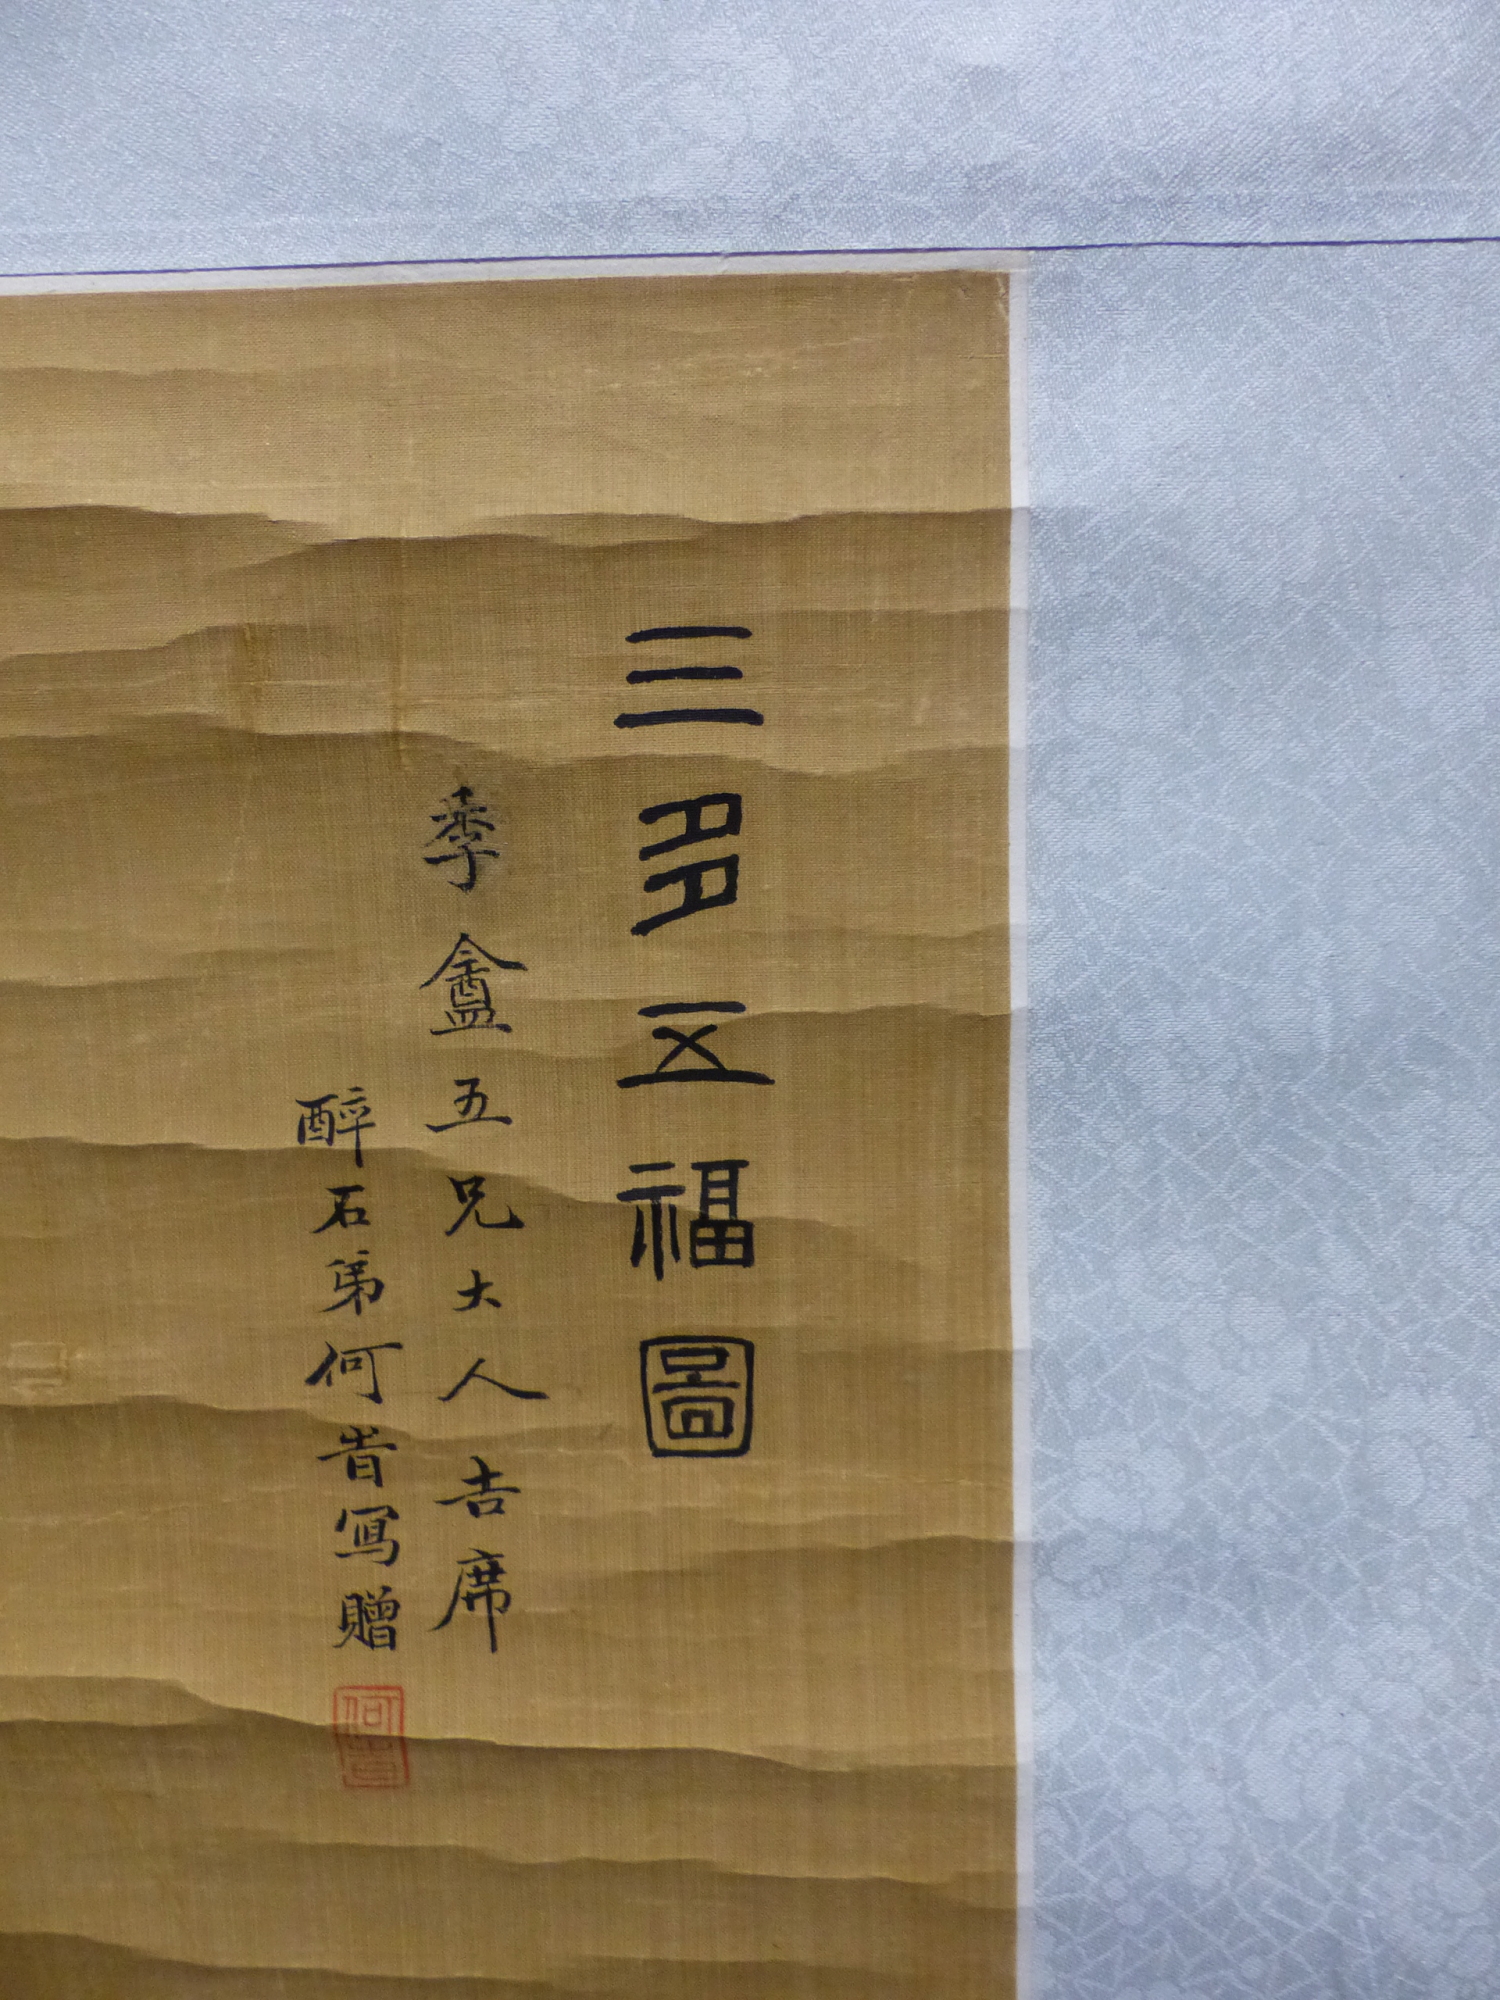 三多五福圖
季盦五兄大人吉席
醉石弟何旹寫贈
何旹